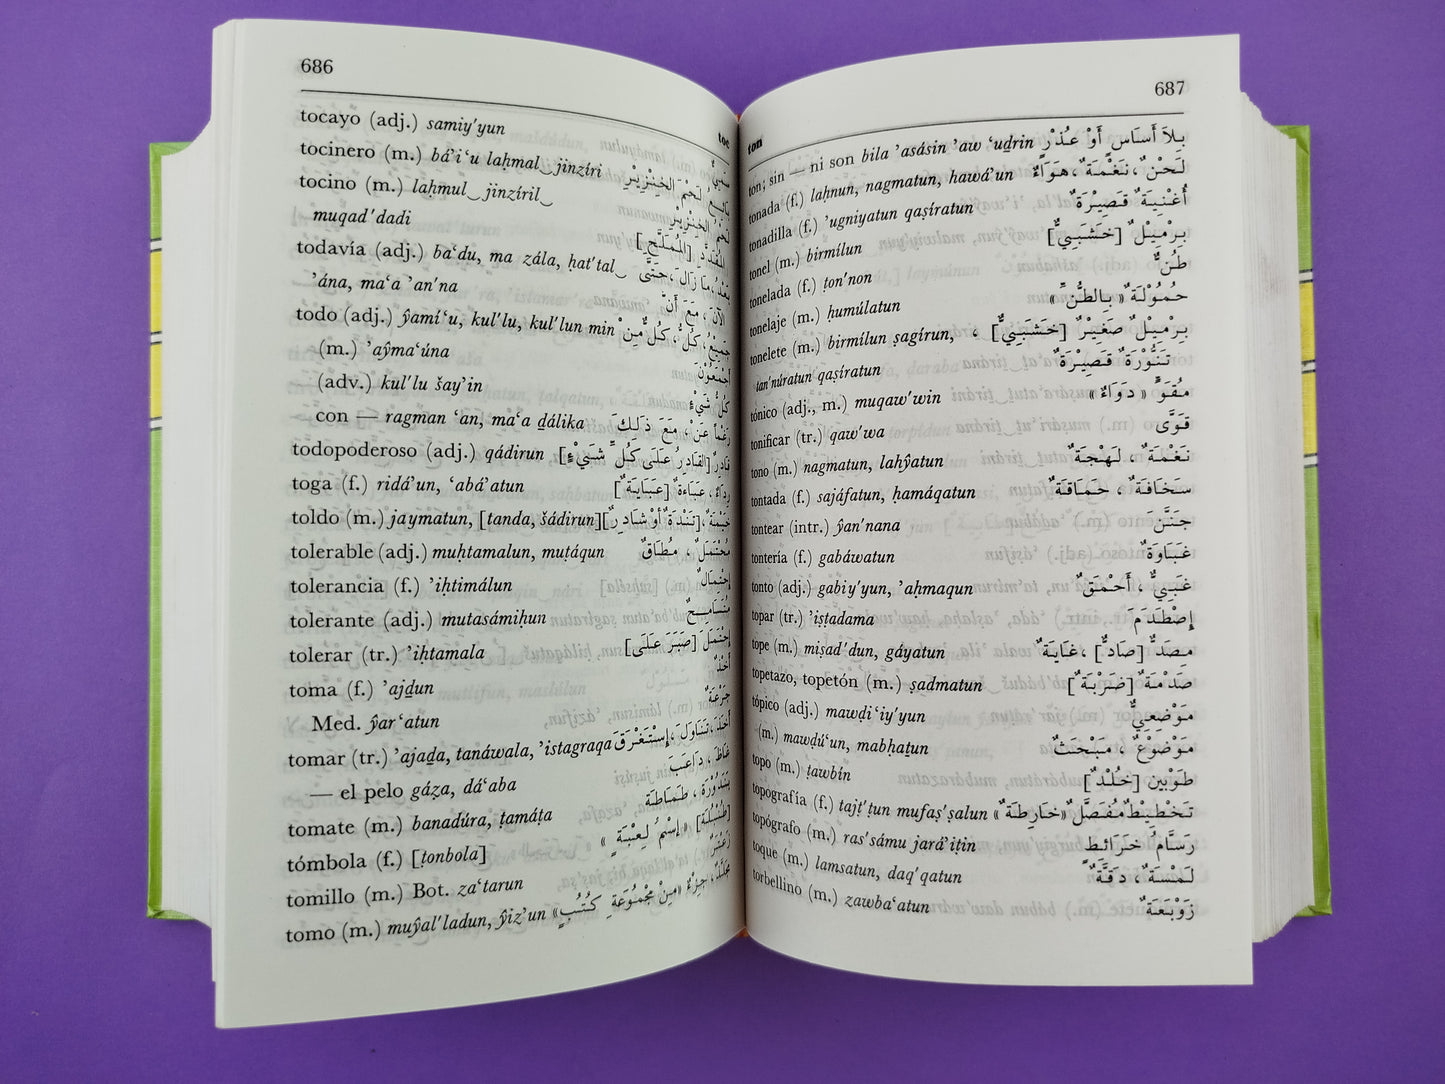 686
toc
tocayo (adj.) samiy'yun سَمِيٌّ
tocinero (m.) bá'i'u laḥmal‿jinzíri بَائِعُ لَحْمَ الخِنْزِيْرِ
tocino (m.) laḥmul‿jinzíril‿ لَحْمُ الخِنْزِيْرِ
muqad'dadi المُقَدَّدِ [المُمَلَّحِ]
todavía (adj.) ba‘du, ma zála, ḥat'tal‿ بَعْدُ، مَا زَالَ، حَتَّى
’ána, ma‘a ’an'na الآنَ، مَعَ أَنَّ
todo (adj.) ŷamí‘u, kul'lu, kul'lun min جَمِيْعُ، كُلُّ، كُلٌّ مِنْ
(m.) ’aŷma‘úna أَجْمَعُوْنَ
(adv.) kul'lu šay’in كُلُّ شَيْءٍ
con — ragman ‘an, ma‘a ḏálika رَغْماً عَنْ، مَعَ ذَلِكَ
todopoderoso (adj.) qádirun قَادِرٌ [القَادِرُ عَلَى كُلِّ شَيْءٍ]
toga (f.) ridá’un, ‘abá’atun رِدَاءٌ، عَبَاءَةٌ [عَبَايَةٌ]
toldo (m.) jaymatun, [tanda, šádirun] خَيْمَةٌ، [تَنْدَةٌ أَوْ شَادِرٌ]
tolerable (adj.) muḥtamalun, muṭáqun مُحْتَمَلٌ، مُطَاقٌ
tolerancia (f.) ’iḥtimálun إِحْتِمَالٌ
tolerante (adj.) mutasámiḥun مُتَسَامِحٌ
tolerar (tr.) ’iḥtamala إِحْتَمَلَ [صَبَرَ عَلَى]
toma (f.) ’ajḏun أَخْذٌ
Med. ŷar‘atun جَرْعَةٌ
tomar (tr.) ’ajaḏa, tanáwala, ’istagraqa أَخَذَ، تَنَاوَلَ، إِسْتَغْرَقَ
— el pelo gáẓa, dá‘aba غَاظَ، دَاعَبَ
tomate (m.) banadúra, ṭamáṭa بَنَدُوْرَة، طَمَاطَة
tómbola (f.) [ṭonbola] [طُنْبُلَة] «إِسْمُ لِعْبَةٍ»
tomillo (m.) Bot. za‘tarun زَعْتَرٌ
tomo (m.) muŷal'ladun, ŷiz’un مُجَلَّدٌ، جِزْءٌ «مِنْ مَجْمُوعَةِ كُتُبٍ»
687
ton
ton; sin — ni son bila ’asásin ’aw ‘uḏrin بِلاَ أَسَاسٍ أَوْ عُذْرٍ
tonada (f.) laḥnun, nagmatun, hawá’un لَحْنٌ، نَغْمَةٌ، هَوَاءٌ
tonadilla (f.) ’ugniyatun qaṣíratun أُغْنِيَةٌ قَصِيْرَةٌ
tonel (m.) birmílun بِرْمِيْلٌ [خَشَبَيٌّ]
tonelada (f.) ṭon'non طُنٌّ
tonelaje (m.) ḥumúlatun حُمُوْلَةٌ «بِالطُّنِّ»
tonelete (m.) birmílun ṣagírun, بِرْمِيْلٌ صَغِيْرٌ [خَشَبَيٌّ]،
tan'núratun qaṣíratun تَنُّوْرَةٌ قَصِيْرَةٌ
tónico (adj., m.) muqaw'win مُقَوٍّ «دَوَاءٌ»
tonificar (tr.) qaw'wa قَوَّى
tono (m.) nagmatun, lahŷatun نَغْمَةٌ، لَهْجَةٌ
tontada (f.) sajáfatun, ḥamáqatun سَخَافَةٌ، حَمَاقَةٌ
tontear (intr.) ŷan'nana جَنَّنَ
tontería (f.) gabáwatun غَبَاوَةٌ
tonto (adj.) gabiy'yun, ’aḥmaqun غَبِيٌّ، أَحْمَقٌ
topar (tr.) ’iṣṭadama إِصْطَدَمَ
tope (m.) miṣad'dun, gáyatun مِصَدٌّ [صَادٌّ]، غَايَةٌ
topetazo, topetón (m.) ṣadmatun صَدْمَةٌ [ضَرْبَةٌ]
tópico (adj.) mawḍi‘iy'yun مَوْضِعِيٌّ
(m.) mawḍú‘un, mabḥaṯun مَوْضُوْعٌ، مَبْحَثٌ
topo (m.) ṭawbín طَوْبِين [خُلْدٌ]
topografía (f.) tajṭ'ṭun mufaṣ'ṣalun تَخْطِيْطٌ مُفَصَّلٌ «خَارِطَةٌ»
topógrafo (m.) ras'sámu jará’iṭin رَسَّامُ خَرَائِطٍ
toque (m.) lamsatun, daq'qatun لَمْسَةٌ، دَقَّةٌ
torbellino (m.) zawba‘atun زَوْبَعَةٌ